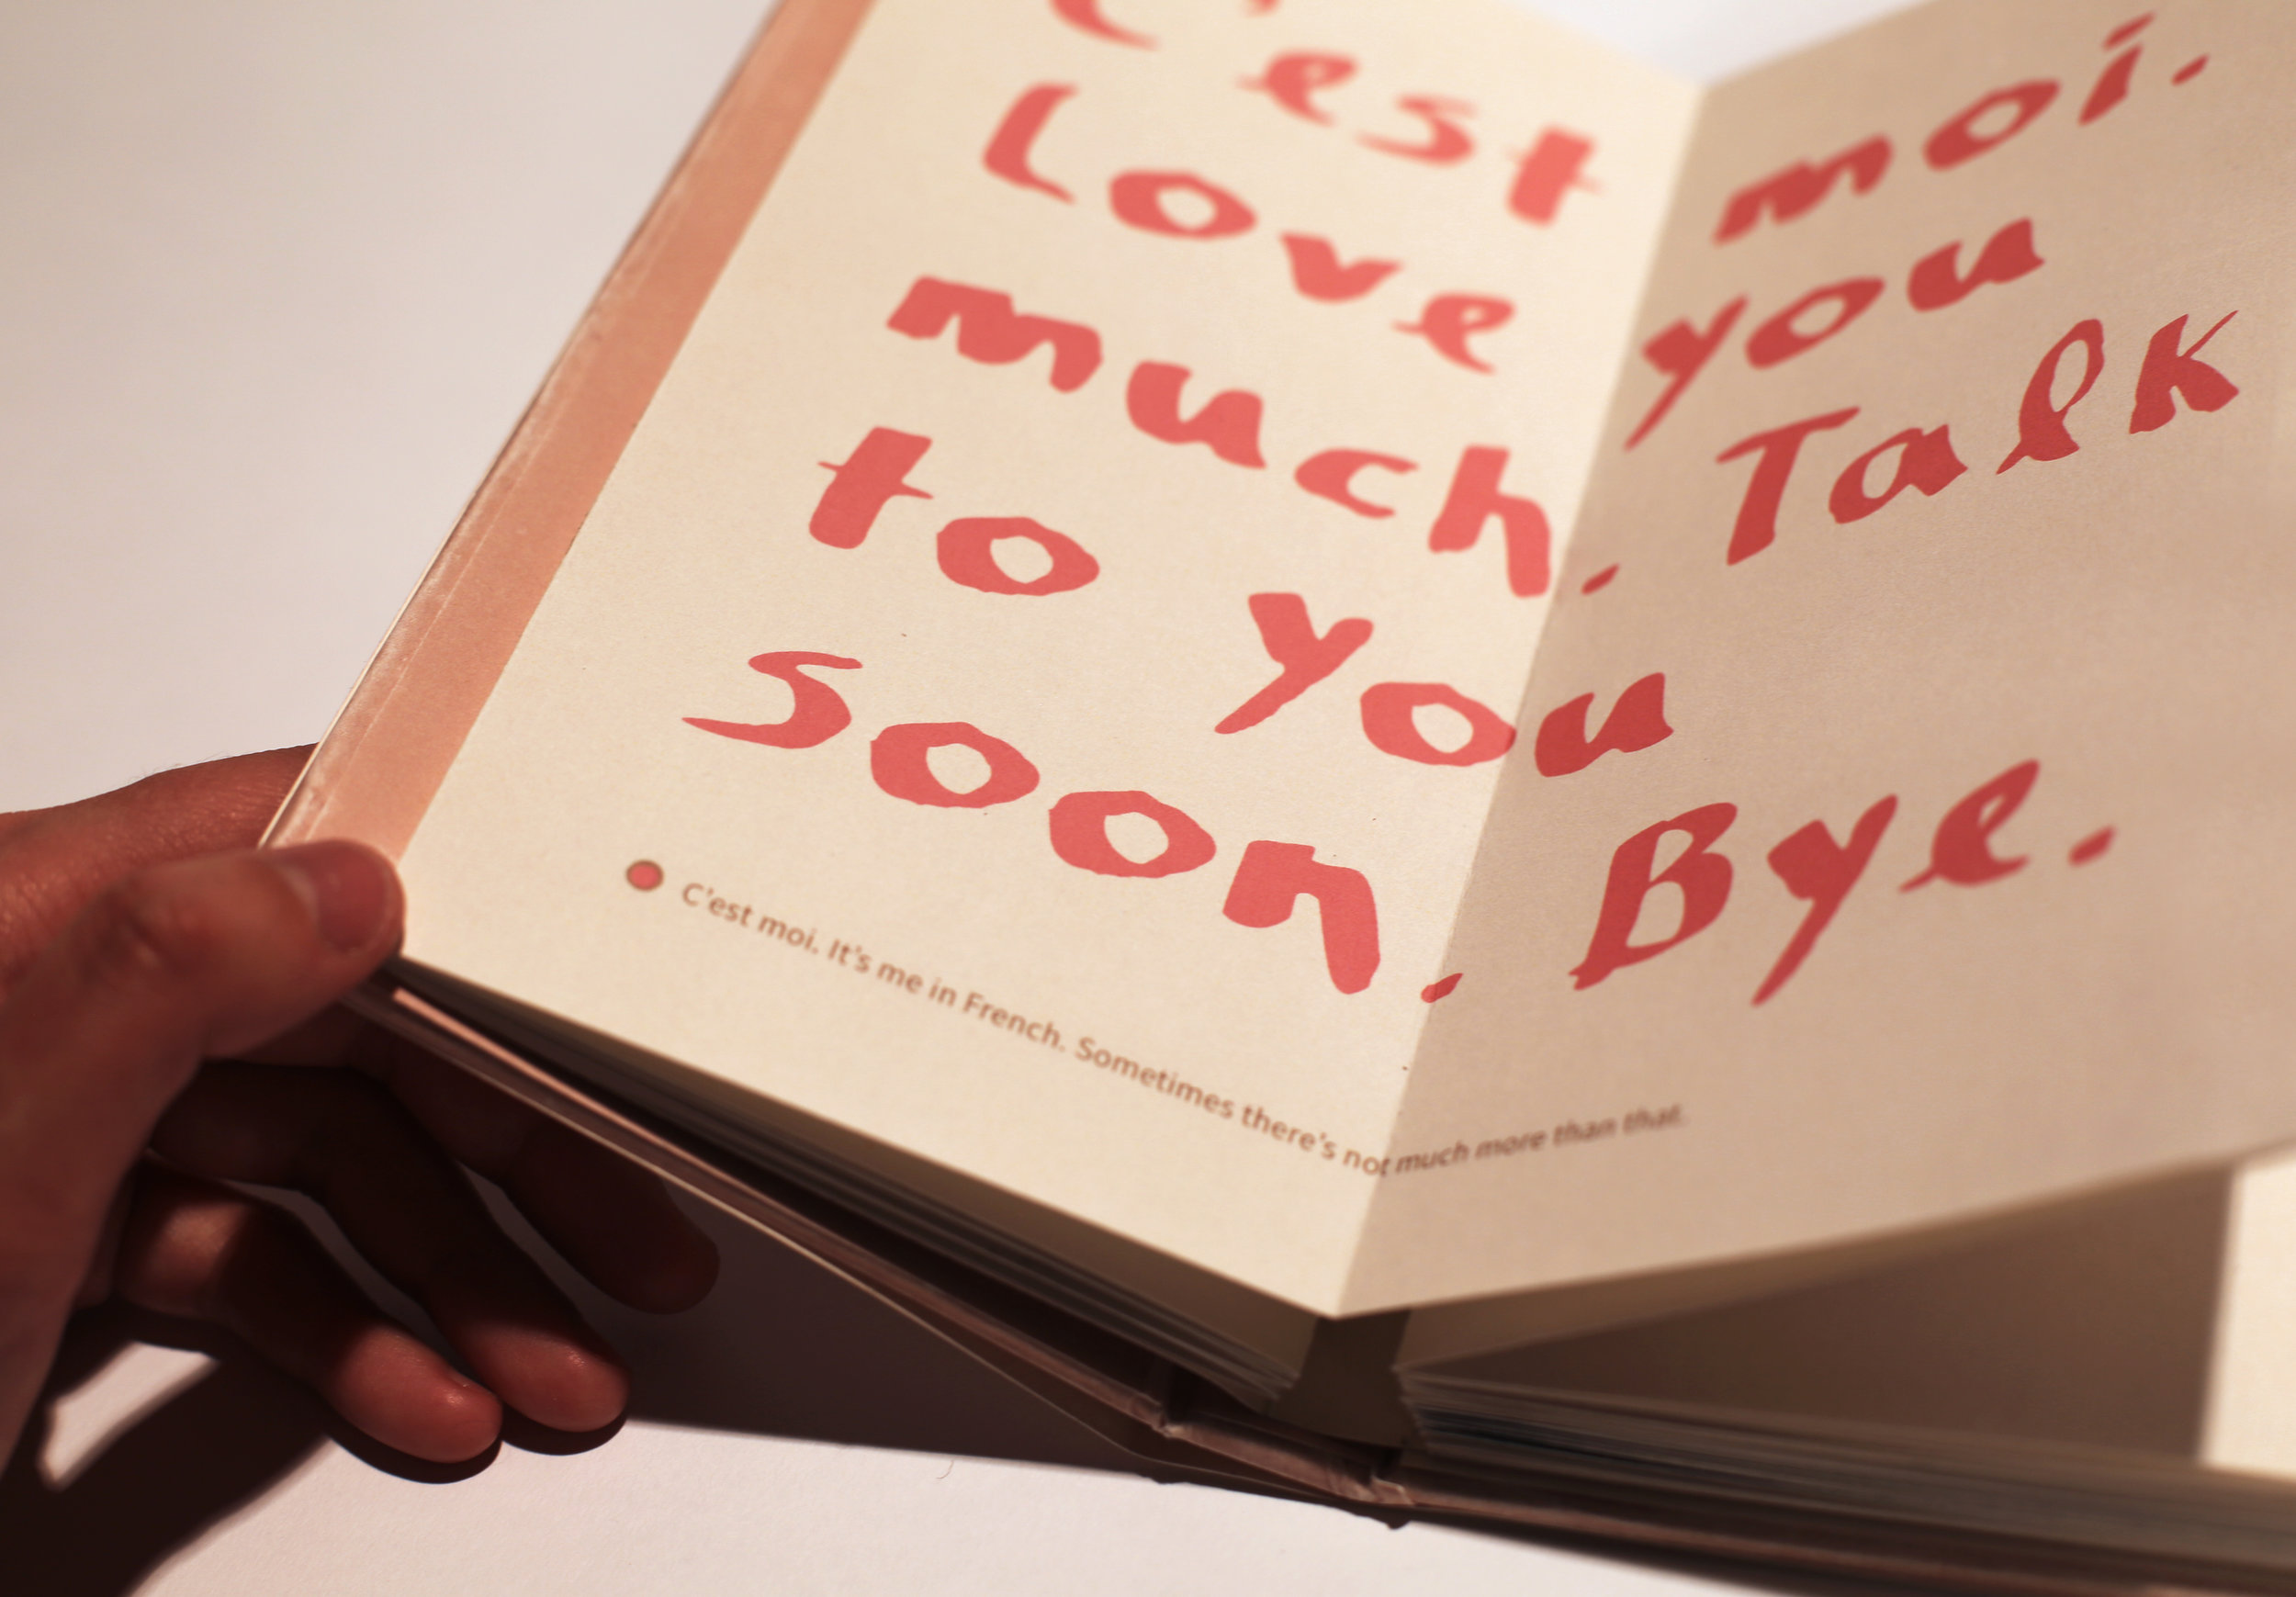 C'est moi.
Love you
much. Talk
to you
soon. Bye.
C'est moi. It's me in French. Sometimes there's not much more than that.